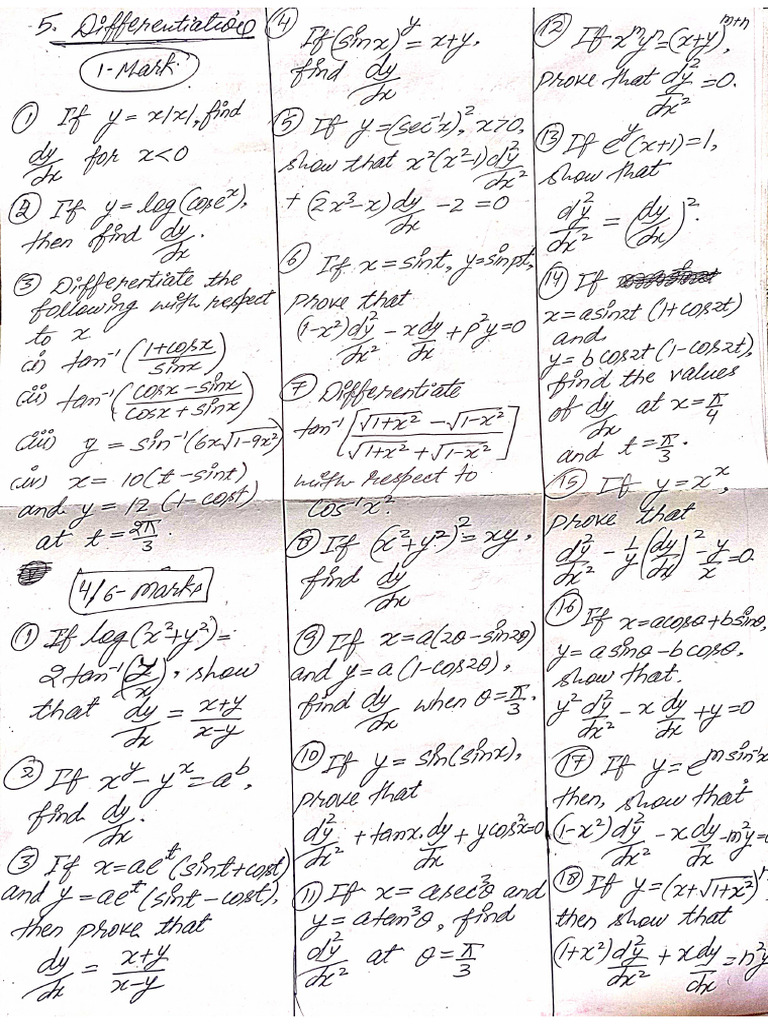 5. Differentiation
1-Mark
① If y = x|x|, find
dy/dx for x<0
② If y = log(cos e^x),
then find dy/dx.
③ Differentiate the
following with respect
to x
(i) tan⁻¹((1+cosx)/sinx)
(ii) tan⁻¹((cosx-sinx)/(cosx+sinx))
(iii) y = sin⁻¹(6x√(1-9x²))
(iv) x = 10(t-sint)
and y = 12(1-cost)
at t = 2π/3.
4/6-marks
① If log(x²+y²) =
2tan⁻¹(y/x), show
that dy/dx = (x+y)/(x-y)
② If x^y - y^x = a^b,
find dy/dx.
③ If x = ae^t(sint+cost)
and y = ae^t(sint-cost),
then prove that
dy/dx = (x+y)/(x-y)
④ If (sinx)^y = x+y,
find dy/dx
⑤ If y = (sec⁻¹x)², x>0,
show that x²(x²-1)d²y/dx²
+ (2x³-x)dy/dx - 2 = 0
⑥ If x = sint, y = sinpt,
prove that
(1-x²)d²y/dx² - x dy/dx + p²y = 0
⑦ Differentiate
tan⁻¹[(√(1+x²) - √(1-x²))/(√(1+x²) + √(1-x²))]
with respect to
cos⁻¹x².
⑧ If (x²+y²)² = xy,
find dy/dx
⑨ If x = a(2θ-sin2θ)
and y = a(1-cos2θ),
find dy/dx when θ = π/3.
⑩ If y = sin(sinx),
prove that
d²y/dx² + tanx.dy/dx + ycos²x = 0
⑪ If x = asec³θ and
y = atan³θ, find
d²y/dx² at θ = π/3
⑫ If x^m y^n = (x+y)^(m+n),
prove that d²y/dx² = 0.
⑬ If e^y(x+1) = 1,
show that
d²y/dx² = (dy/dx)².
⑭ If
x = asin2t(1+cos2t)
and
y = bcos2t(1-cos2t),
find the values
of dy/dx at x = π/4
and t = π/3.
⑮ If y = x^x,
prove that
d²y/dx² - 1/y(dy/dx)² - y/x = 0
⑯ If x = acosθ+bsinθ,
y = asinθ-bcosθ,
show that.
y² d²y/dx² - x dy/dx + y = 0
⑰ If y = e^(msin⁻¹x
then, show that
(1-x²)d²y/dx² - x dy/dx - m²y =
⑱ If y = (x+√(1+x²))^n
then show that
(1+x²)d²y/dx² + x dy/dx = n²y